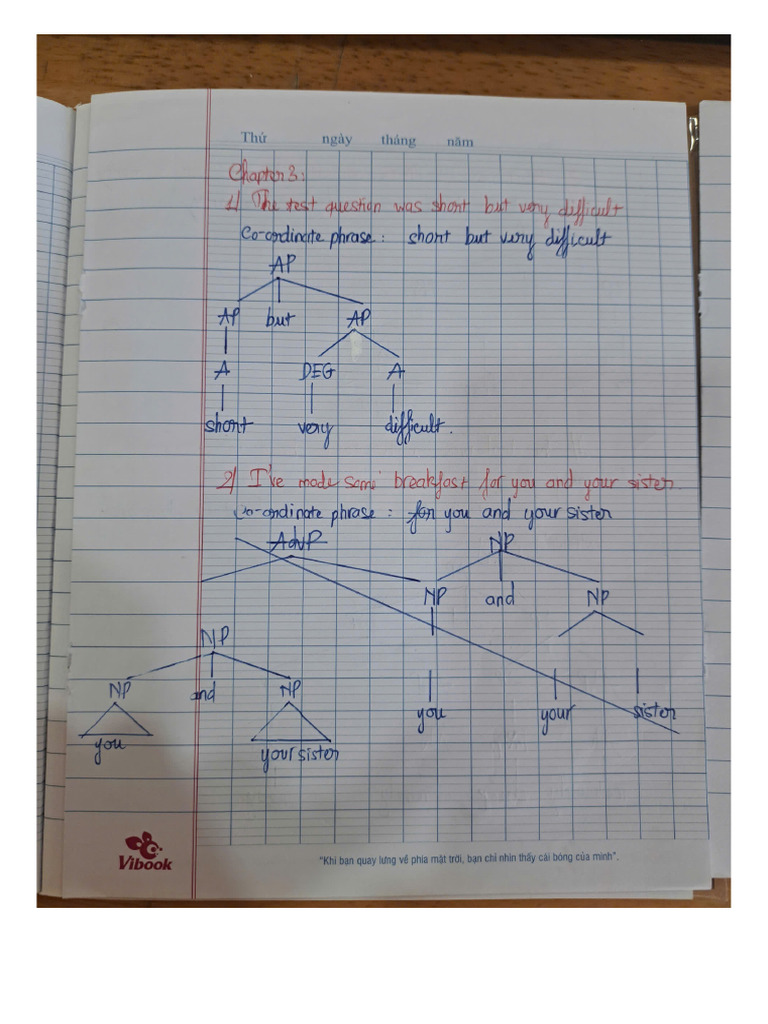 Thứ ngày tháng năm
Chapter 3:
1) The test question was short but very difficult
Co-ordinate phrase: short but very difficult
AP
AP but AP
A DEG A
short very difficult.
2) I've made some breakfast for you and your sister.
Co-ordinate phrase: for you and your sister
AdvP NP
NP and NP
NP
NP and NP
you your sister
you your sister
Vibook
"Khi bạn quay lưng về phía mặt trời, bạn chỉ nhìn thấy cái bóng của mình".